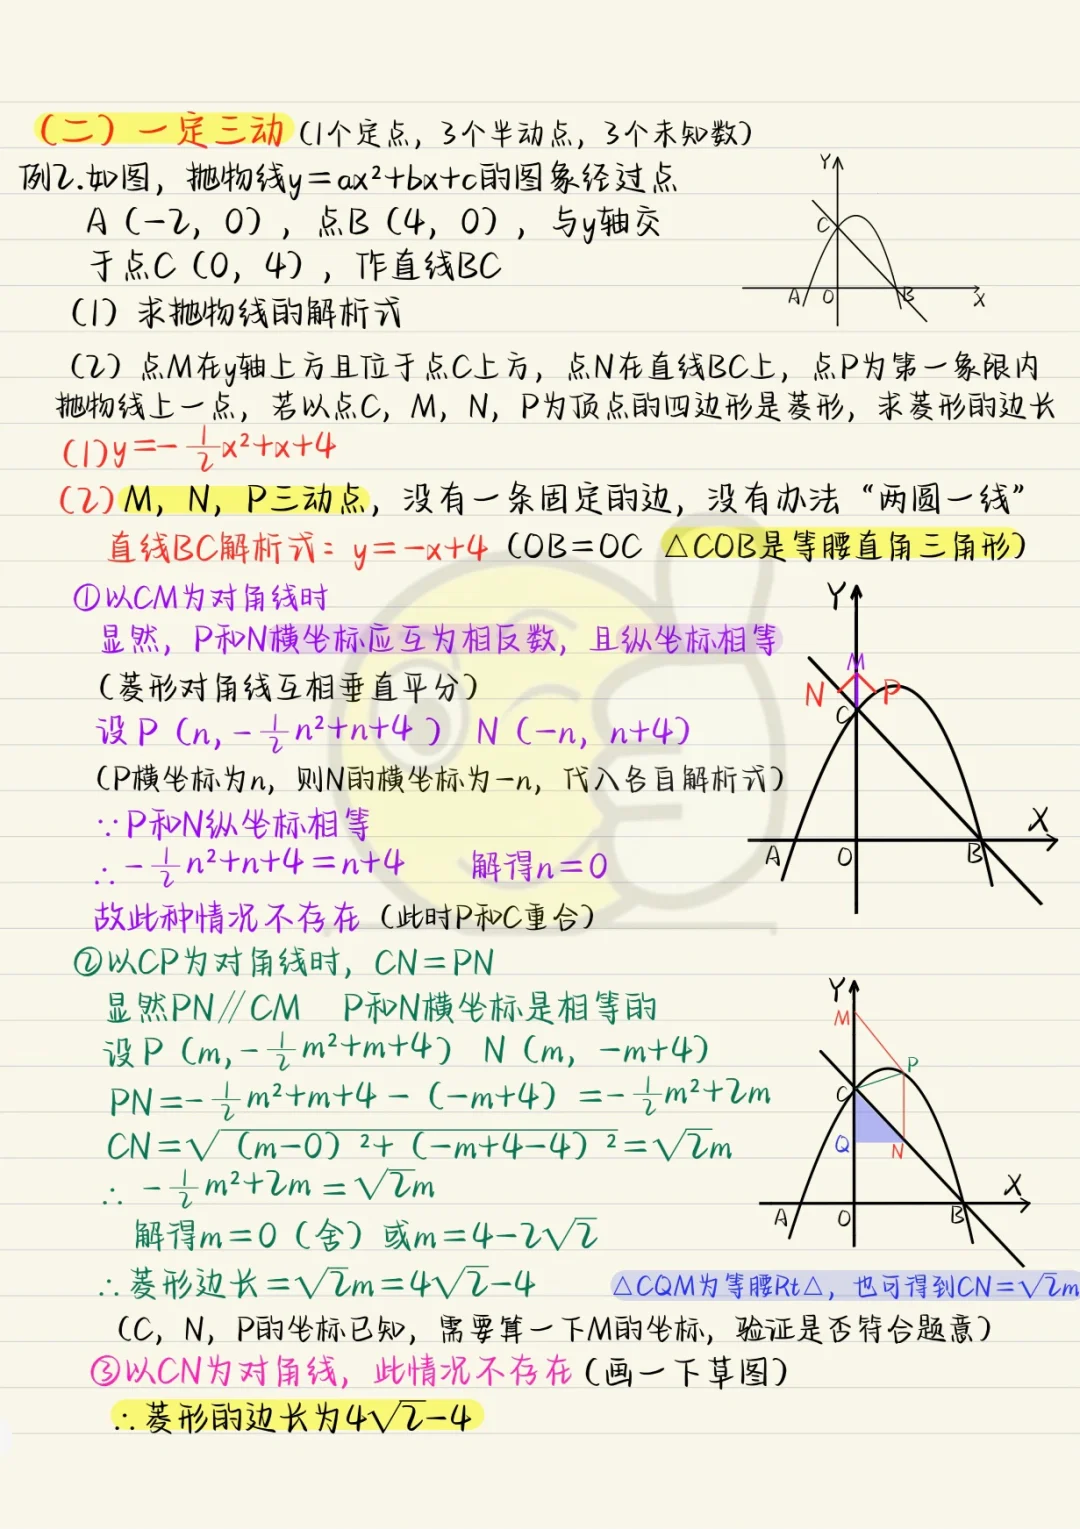 （二）一定三动（1个定点，3个半动点，3个未知数）
例2.如图，抛物线y=ax²+bx+c的图象经过点
A（-2，0），点B（4，0），与y轴交
于点C（0，4），作直线BC
（1）求抛物线的解析式
（2）点M在y轴上方且位于点C上方，点N在直线BC上，点P为第一象限内
抛物线上一点，若以点C，M，N，P为顶点的四边形是菱形，求菱形的边长
Y
C
A
O
B
X
(1)y=-1/2x²+x+4
(2)M，N，P三动点，没有一条固定的边，没有办法“两圆一线”
直线BC解析式：y=-x+4（OB=OC △COB是等腰直角三角形）
①以CM为对角线时
显然，P和N横坐标应互为相反数，且纵坐标相等
（菱形对角线互相垂直平分）
设P（n,-1/2n²+n+4） N（-n，n+4）
（P横坐标为n，则N的横坐标为-n，代入各自解析式）
∵P和N纵坐标相等
∴-1/2n²+n+4=n+4 解得n=0
故此种情况不存在（此时P和C重合）
Y
M
N
P
C
X
A
O
B
②以CP为对角线时，CN=PN
显然PN∥CM P和N横坐标是相等的
设P（m,-1/2m²+m+4） N（m，-m+4）
PN=-1/2m²+m+4-（-m+4）=-1/2m²+2m
CN=√（m-0）²+（-m+4-4）²=√2m
∴-1/2m²+2m=√2m
解得m=0（舍）或m=4-2√2
∴菱形边长=√2m=4√2-4
Y
M
P
C
Q
N
X
A
O
B
△CQM为等腰Rt△，也可得到CN=√2m
（C，N，P的坐标已知，需要算一下M的坐标，验证是否符合题意）
③以CN为对角线，此情况不存在（画一下草图）
∴菱形的边长为4√2-4